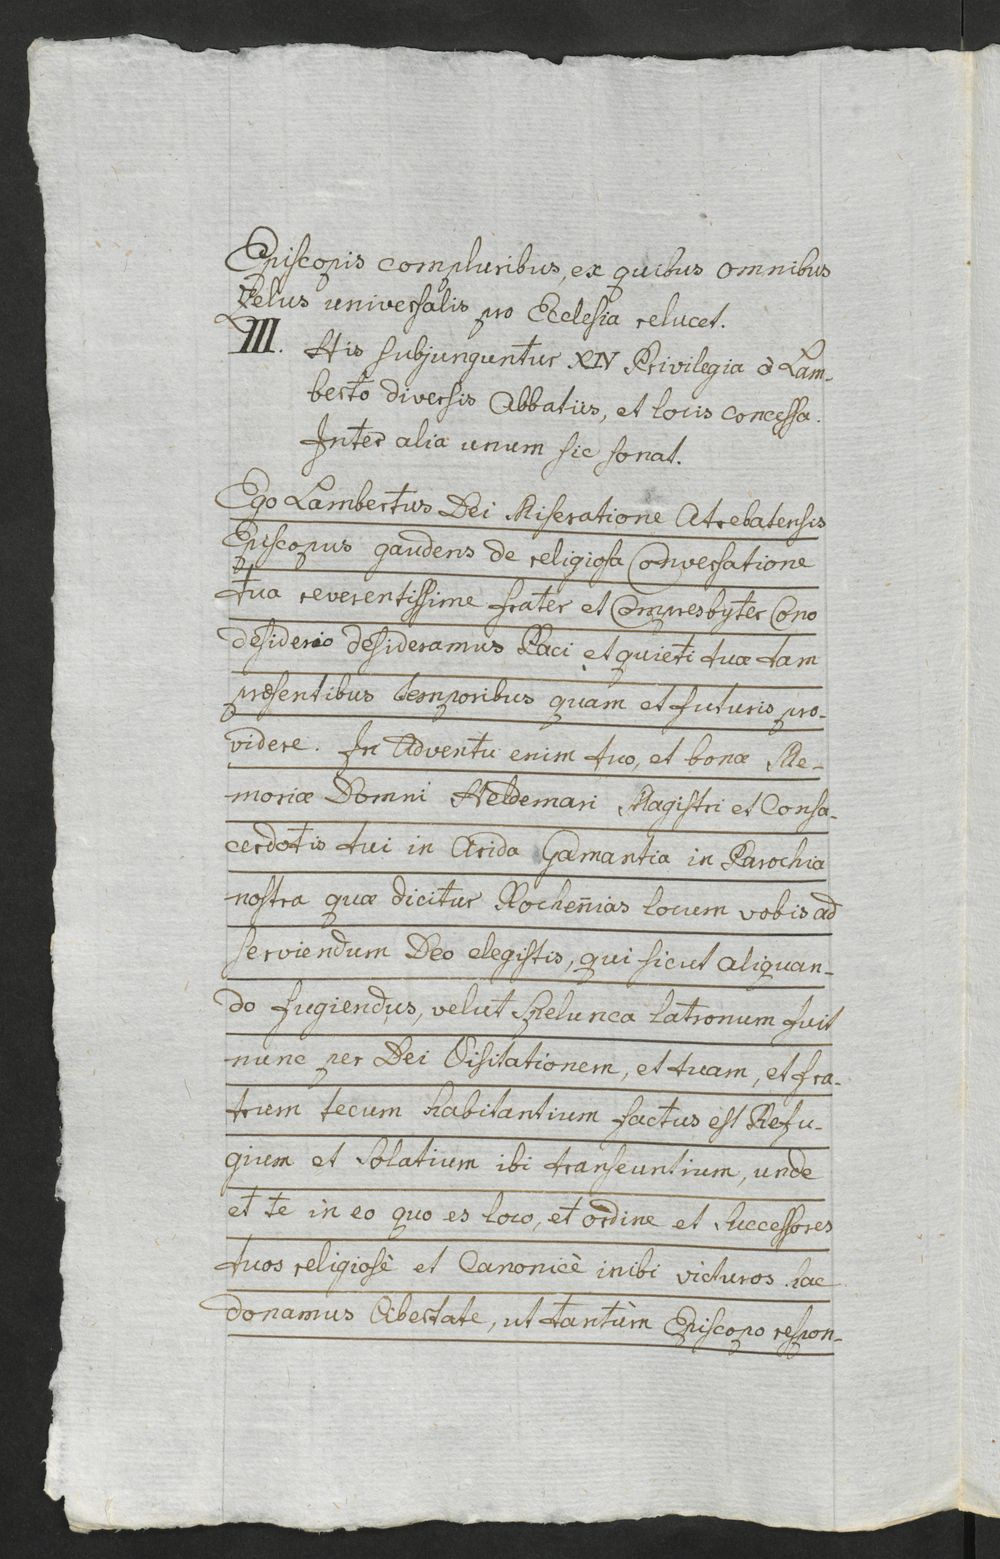 Episcopis compluribus, ex quibus omnibus
Zelus universalis pro Ecclesia relucet.
III. His subjunguntur XIV Privilegia à Lam-
berto diversis Abbatiis, et locis concessa.
Inter alia unum sic sonat.
Ego Lambertus Dei Miseratione Atrebatensis
Episcopus gaudens de religiosa Conversatione
tua reverentissime frater et Compresbyter Cono
desiderio desideramus Paci et quieti tuæ tam
præsentibus temporibus quam et futuris pro-
videre. In Adventu enim tuo, et bonæ Me-
moriæ Domni Heldemari Magistri et Consa-
cerdotis tui in Arida Gamantia in Parochia
nostra quæ dicitur Rocheñias locum vobis ad
serviendum Deo elegistis, qui sicut aliquan-
do fugiendus, velut Spelunca latronum fuit
nunc per Dei Visitationem, et tuam, et fra-
trum tecum habitantium factus est Refu-
gium et Solatium ibi transeuntium, unde
et te in eo quo es loco, et ordine et Successores
tuos religiosè et Canonicè inibi victuros hac
donamus libertate, ut tantùm Episcopo respon-